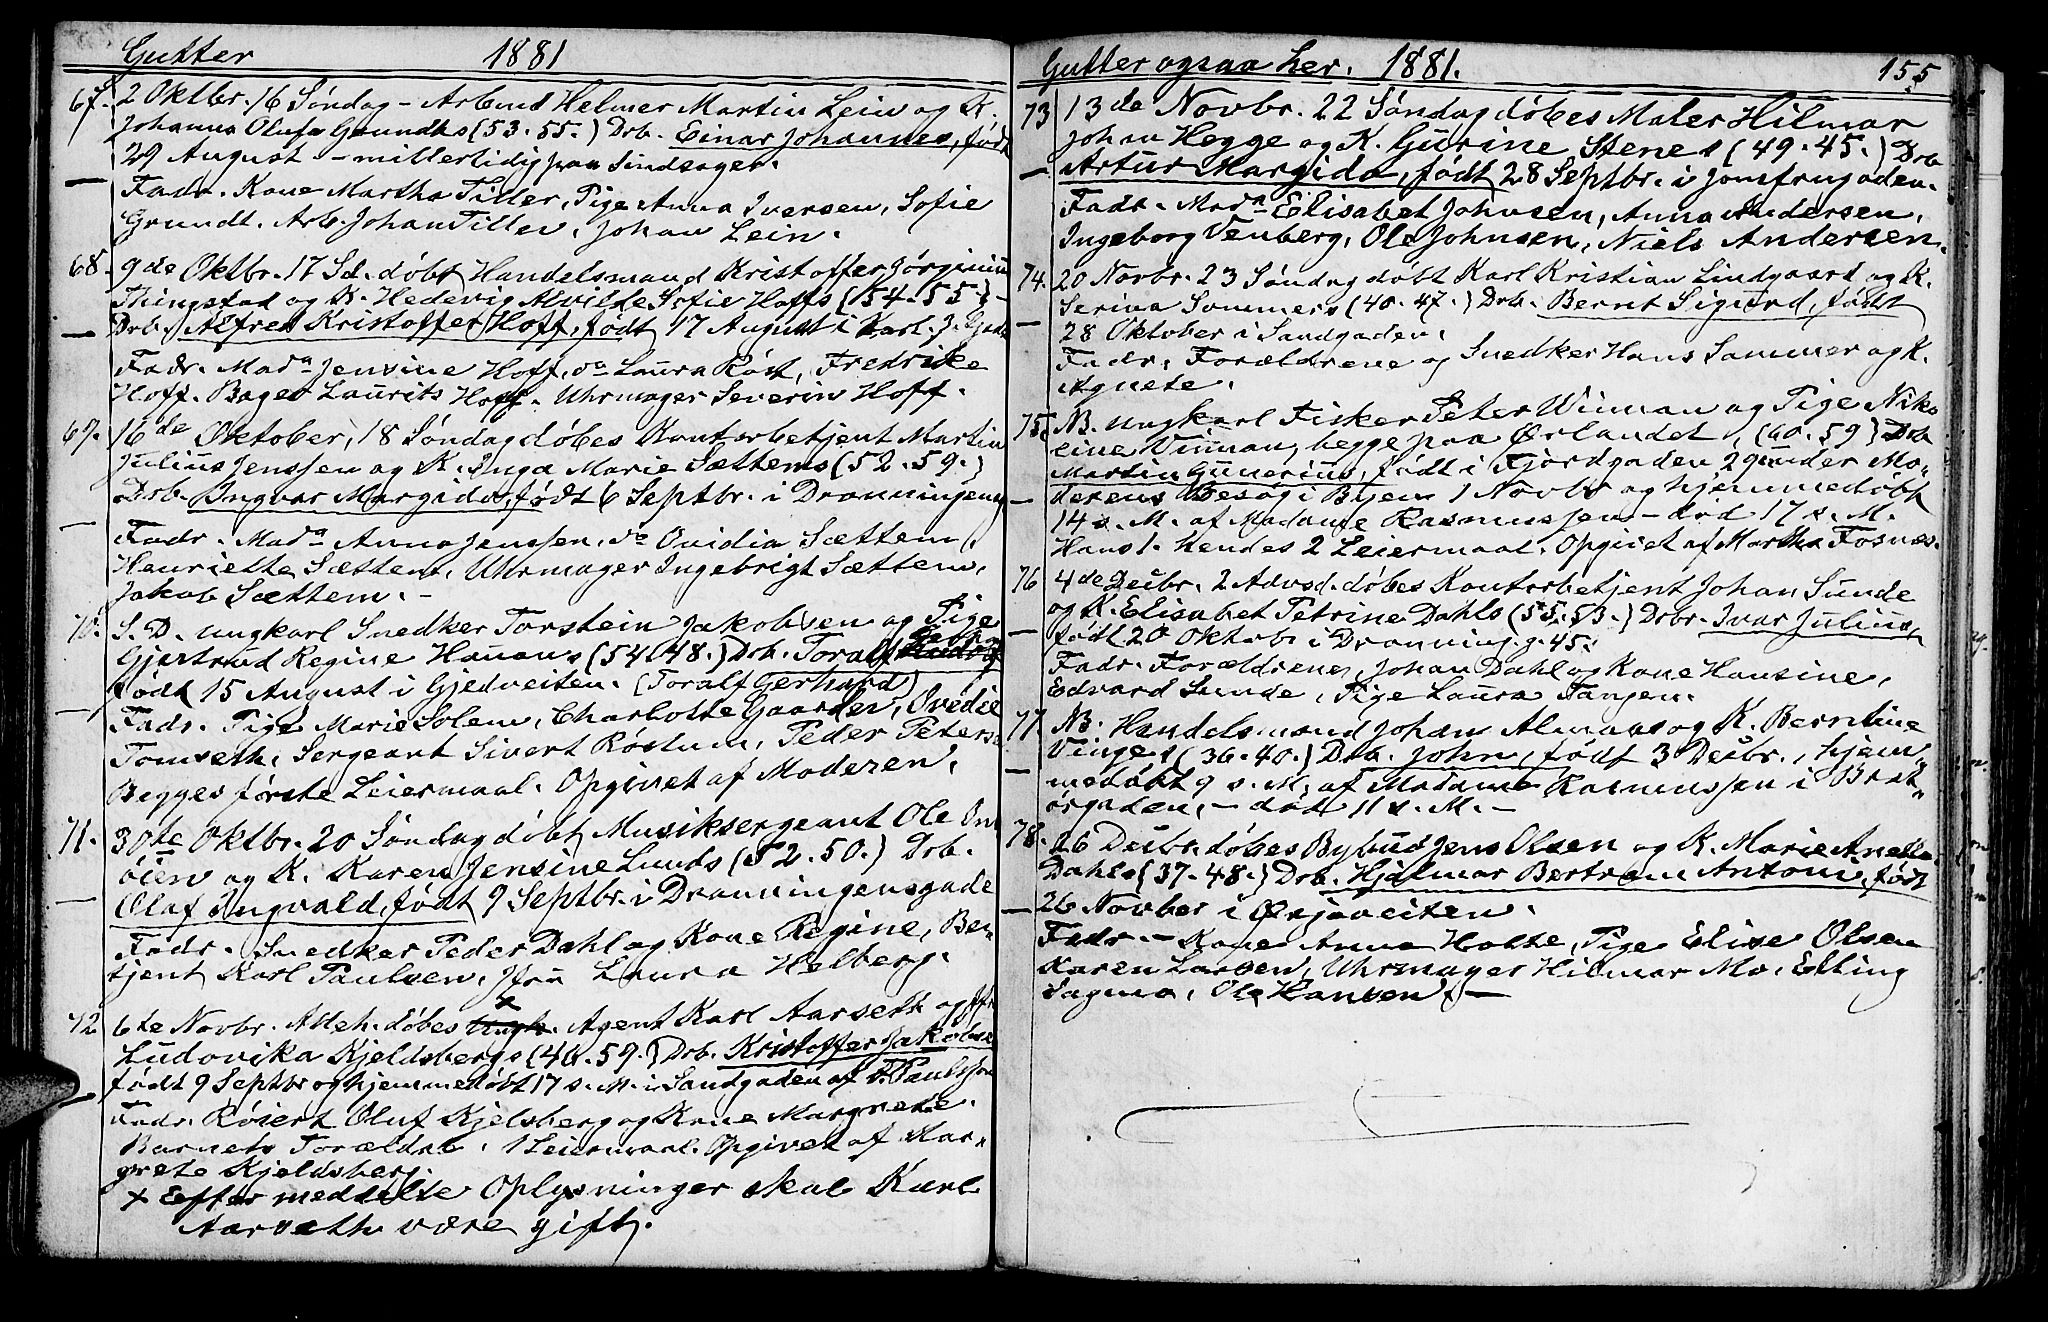 Gutter 1881
67. 2 Oktbr. 16 Søndag – Arbmd Helmer Martin Lein og K.
Johanna Olufa Grundts (53. 55.) Drb. Einar Johannes, født
29 August – midlertidig paa Sindsager.
Fadr. Kone Martha Tiller, Pige Anna Iversen, Sofie
Grundt. Arb. Johan Tiller, Johan Lein.
68. 9de Oktbr. 17 Sd. døbt Handelsmand Kristoffer Jørginius
Thingstad og K. Hedevig Alvilde Sofie Hoffs (54. 55.) –
Drb. Alfred Kristoffer Hoff, født 17 August i Karl. J. Gade
Fadr. Mada Jensine Hoff, do Laura Röst, Fredrike
Hoff. Bager Laurits Hoff. Uhrmager Severin Hoff.
69. 16de Oktober, 18 Søndag døbes Kontorbetjent Martin
Julius Jenssen og K. Inga Marie Sættems (52. 59.)
Drb. Ingvar Margido, født 6 Septbr. i Dronningens
Fadr. Mada Anna Jenssen, do Ovidia Sættem,
Henriette Sættem, Uhrmager Ingebrigt Sættem,
Jakob Sættem. –
70. S. D. Ungkarl Snedker Torstein Jakobsen og Pige
Gjertrud Regine Hanans (54. 48.) Drb. Toralf
født 15 August i Gjedveiten. (Toralf Gerhard)
Fadr. Pige Marie Solem, Charlotte Gaarder, Ovedie
Tomseth, Sergeant Sivert Röstum, Peder Peters
Begges første Leiermaal. Opgivet af Moderen.
71. 30te Oktbr. 20 Søndag døbt Musiksergeant Ole
öien og K. Karen Jensine Lunds (52. 50.) Drb.
Olaf Ingvald, født 9 Septbr. i Dronningensgade
Fadr. Snedker Peder Dahl og Kone Regine, Be-
tjent Karl Paulsen, Jfru Laura Helberg.
72 6te Novbr. Alleh. døbes Ungk. x Agent Karl Aarseth og Jfr.
Ludovika Kjeldsbergs (46. 59.) Drb. Kristoffer Jakobsen
født 9 Septbr og hjemmedøbt 17 s. M. i Sandgaden af T. Paulssen
Fadr. Røiert Oluf Kjelsberg og Kone Margrete.
Barnets Forældre. 1 Leiermaal. Opgivet af Mar-
grete Kjeldsberg.
x Efter meddelte Oplysninger skal Karl
Aarseth være gift.
Gutter ogsaa her. 1881. 155
73 13de Novbr. 22 Søndag døbes Maler Hilmar
Johan Hegge og K. Gurine Stenes (49. 45.) Drb
Artur Margido, født 28 Septbr. i Jomfrugaden.
Fadr. Mada Elisabet Johnsen, Anna Andersen,
Ingeborg Venberg, Ole Johnsen, Niels Andersen.
74. 20 Novbr. 23 Søndag døbt Karl Kristian Lindgaard og K.
Serina Sommers (40. 47.) Drb. Bernt Sigurd, født
28 Oktober i Sandgaden.
Fadr. Forældrene og Snedker Hans Sommer og K.
Agnete.
75. NB. Ungkarl Fisker Peter Winman og Pige Niko
line Winman, begge paa Ørlandet, (60. 59) Drb
Martin Gunerius, født i Fjordgaden 29 under Mo-
derens Besøg i Byen 1 Novbr og hjemmedøbt
14 s. M. af Madame Rasmussen – död 17 s. M.
Hans 1. Hendes 2 Leiermaal. Opgivet af Martha Fosnæs.
76 4de Decbr. 2 Advsd. døbes Kontorbetjent Johan Sunde
og K. Elisabet Petrine Dahls (55. 53.) Drbr. Ivar Julius,
født 20 Oktob. i Dronning. g. 45.
Fadr. Forældrene, Johan Dahl og Kone Hansine,
Edvard Sunde, Pige Laura Tangen.
77. NB. Handelsmand Johan Almaas og K. Berntine
Vinges (36. 40.) Drb. John, født 3 Decbr., hjem-
medøbt 9 s. M. af Madame Rasmussen i Brat-
ørgaden, – död 11 s. M. –
78. 26 Decbr. døbes Bybud Jens Olsen og K. Marie Anette
Dahls (37. 48.) Drb. Hjalmar Bertram Antoni, født
26 Novber i Ørjaveiten.
Fadr. – Kone Anna Holte, Pige Elise Olsen
Karen Larsen, Uhrmager Hilmar Mo, Elling
Sagmo, Ole Hansen. –